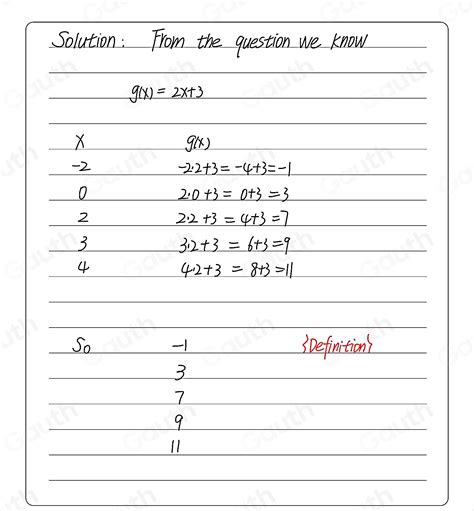 Solution: From the question we know
g(x) = 2x+3
x g(x)
-2 -2·2+3 = -4+3 = -1
0 2·0+3 = 0+3 = 3
2 2·2+3 = 4+3 = 7
3 3·2+3 = 6+3 = 9
4 4·2+3 = 8+3 = 11
So -1 {Definition}
3
7
9
11